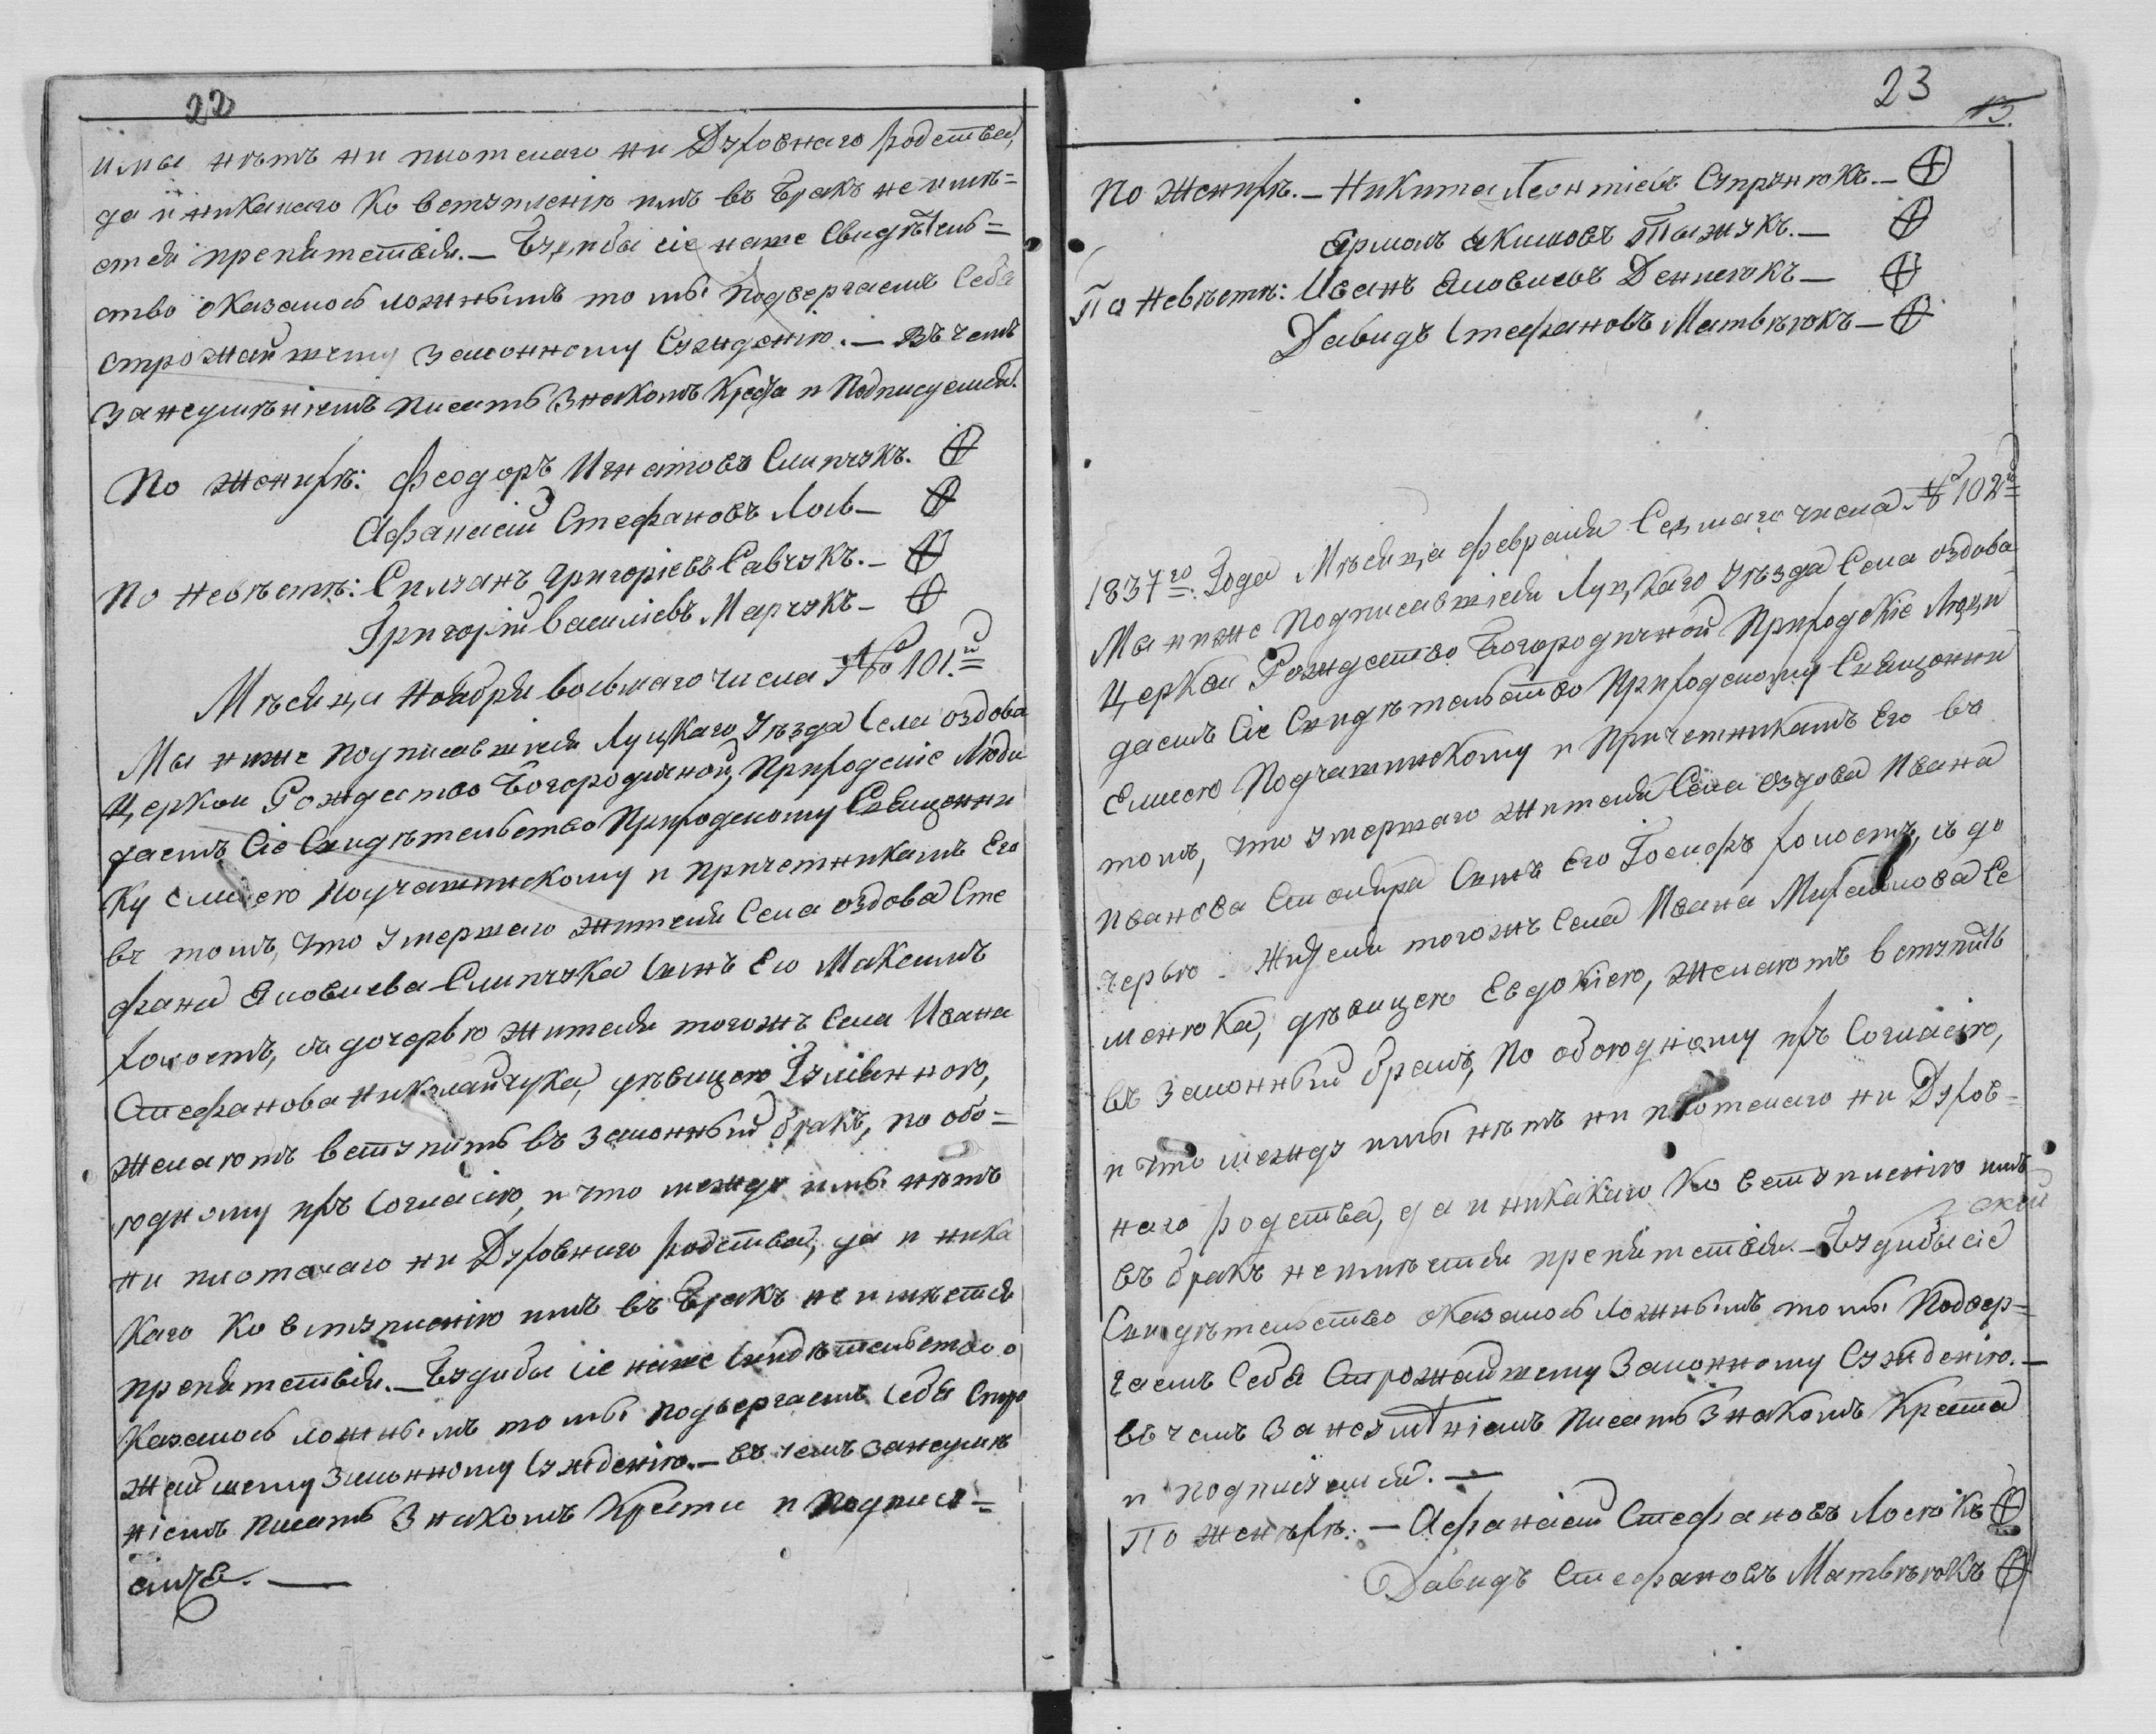 22
ими нѣтъ ни плотскаго ни Духовнаго родства,
да и никакаго ко вступленію имъ въ Бракъ не имѣ=
ется препятствія. — Буде бы сіе наше Свидѣтель=
ство оказалось ложнымъ то мы подвергаемъ Себя
строжайшему законному Сужденію. — въ чемъ
за неумѣніемъ писать Знакомъ Креста и Подписуемся.
По женихѣ: Феодоръ Игнатовъ Слипчукъ.
Афанасій Стефановъ Лось —
По невѣстѣ: Силуанъ Григоріевъ Савчукъ. —
Григорій Василіевъ Марчукъ —
Мѣсяца Ноября восьмаго числа № 101.й
Мы ниже подписавшіеся Луцкаго Уѣзда Села Оздова
Церкви Рождество Богородичной, Приходскіе Люди
даемъ Сіе Свидѣтельство Приходскому Священни
ку Емилею Подчашинскому и причетникамъ Его
въ томъ, что умершаго жителя Села Оздова Сте
фана Яковлева Слипчука Сынъ Его Максимъ
холостъ, съ дочерью жителя тогожъ Села Ивана
Стефанова Николайчука, дѣвицею Іуліянною,
желаютъ вступить въ законный бракъ, по обо=
юдному ихъ Согласію, и что между ими нѣтъ
ни плотскаго ни Духовнаго родства, да и ника
каго ко вступленію имъ въ Бракъ не имѣется
препятствія. — Будибы Сіе наше Свидѣтельство о
казалось ложнымъ то мы подвергаемъ Себя Стро
жайшему Законному Сужденію. — въ чемъ за неумѣ
ніемъ писать Знакомъ Креста и подписа=
емся. —
23
13.
По женихѣ. — Никита Леонтіевъ Супрунюкъ. —
Ярмолъ Якимовъ Тыжукъ. —
По невѣстѣ: Иванъ Яковлевъ Денисюкъ —
Давидъ Стефановъ Матвѣюкъ —
1837го. Года Мѣсяца февраля Седмаго числа № 102й
Мы ниже подписавшіеся Луцкаго Уѣзда Села Оздова
Церкви Рождество Богородичной Приходскіе Люди
даемъ Сіе Свидѣтельство Приходскому Священни
Емилею Подчашинскому и Причетникамъ Его въ
томъ, что умершаго жителя Села Оздова Ивана
Иванова Сынъ Его Іосифъ холостъ, съ до
черью жителя тогожъ Села Ивана Михайлова Се
менюка, дѣвицею Евдокіею, желаютъ вступить
въ законный бракъ, по обоюдному ихъ Согласію,
и что между ими нѣтъ ни плотскаго ни Духов=
наго родства, да и никакаго ко вступленію имъ
въ бракъ неимѣется препятствія. — Будибы сіе
Свидѣтельство оказалось ложнымъ то мы Подвер=
гаемъ Себя Строжайшему Законному Сужденію. —
въ чемъ За неумѣніемъ писать Знакомъ Креста
и подписуемся. —
По женѣхѣ. — Афанасій Стефановъ Лосюкъ
Давидъ Стефановъ Матвѣюкъ